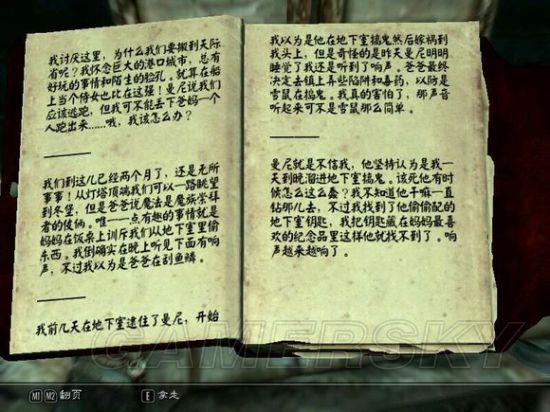 我讨厌这里，为什么我们要搬到天际
省呢？我怀念巨大的港口城市，总有
好玩的事情和陌生的脸孔。就算在船
上当个侍女也比在这强！曼尼说我们
应该逃跑，但我可不能丢下爸妈一个
人跑出来……哦，我该怎么办？
我们到这儿已经两个月了，还是无所
事事！从灯塔顶端我们可以一路眺望
到冬堡，但是爸爸说魔法是魔族崇拜
者的伎俩。唯一一点有趣的事情就是
妈妈在饭桌上训斥我们从地下室里偷
东西。我倒确实在晚上听见下面有响
声，不过我以为是爸爸在刮鱼鳞。
我前几天在地下室逮住了曼尼，开始
我以为是他在地下室搞鬼然后嫁祸到
我头上，但是奇怪的是昨天曼尼明明
睡觉了我还是听到了响声。爸爸最终
决定去镇上弄些陷阱和毒药，以防是
雪鼠在搞鬼。我真的害怕了，那声音
听起来可不是雪鼠那么简单。
曼尼就是不信我，他坚持认为是我一
天到晚溜进地下室搞鬼。该死他有时
候怎么这么蠢？我不知道他干嘛一直
钻那儿去，不过我找到了他偷偷配的
地下室钥匙，我把钥匙藏在妈妈最喜
欢的纪念品里这样他就找不到了。响
声越来越响了。
GAMERSKY
M1 M2 翻页 E 拿走